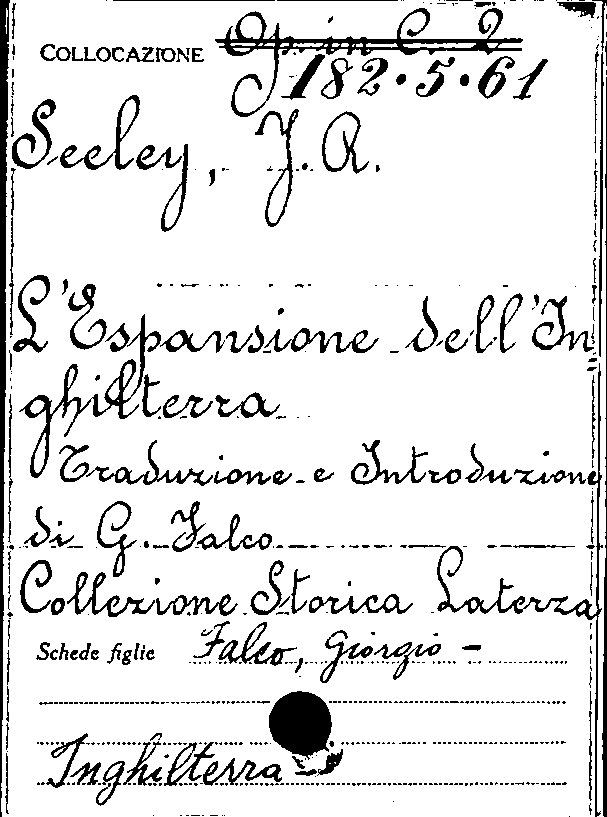 COLLOCAZIONE Op. in C. 2
182.5.61
Seeley, J. R.
L'Espansione dell'In=
ghilterra
Traduzione e Introduzione
di G. Falco
Collezione Storica Laterza
Schede figlie Falco, Giorgio -
Inghilterra -